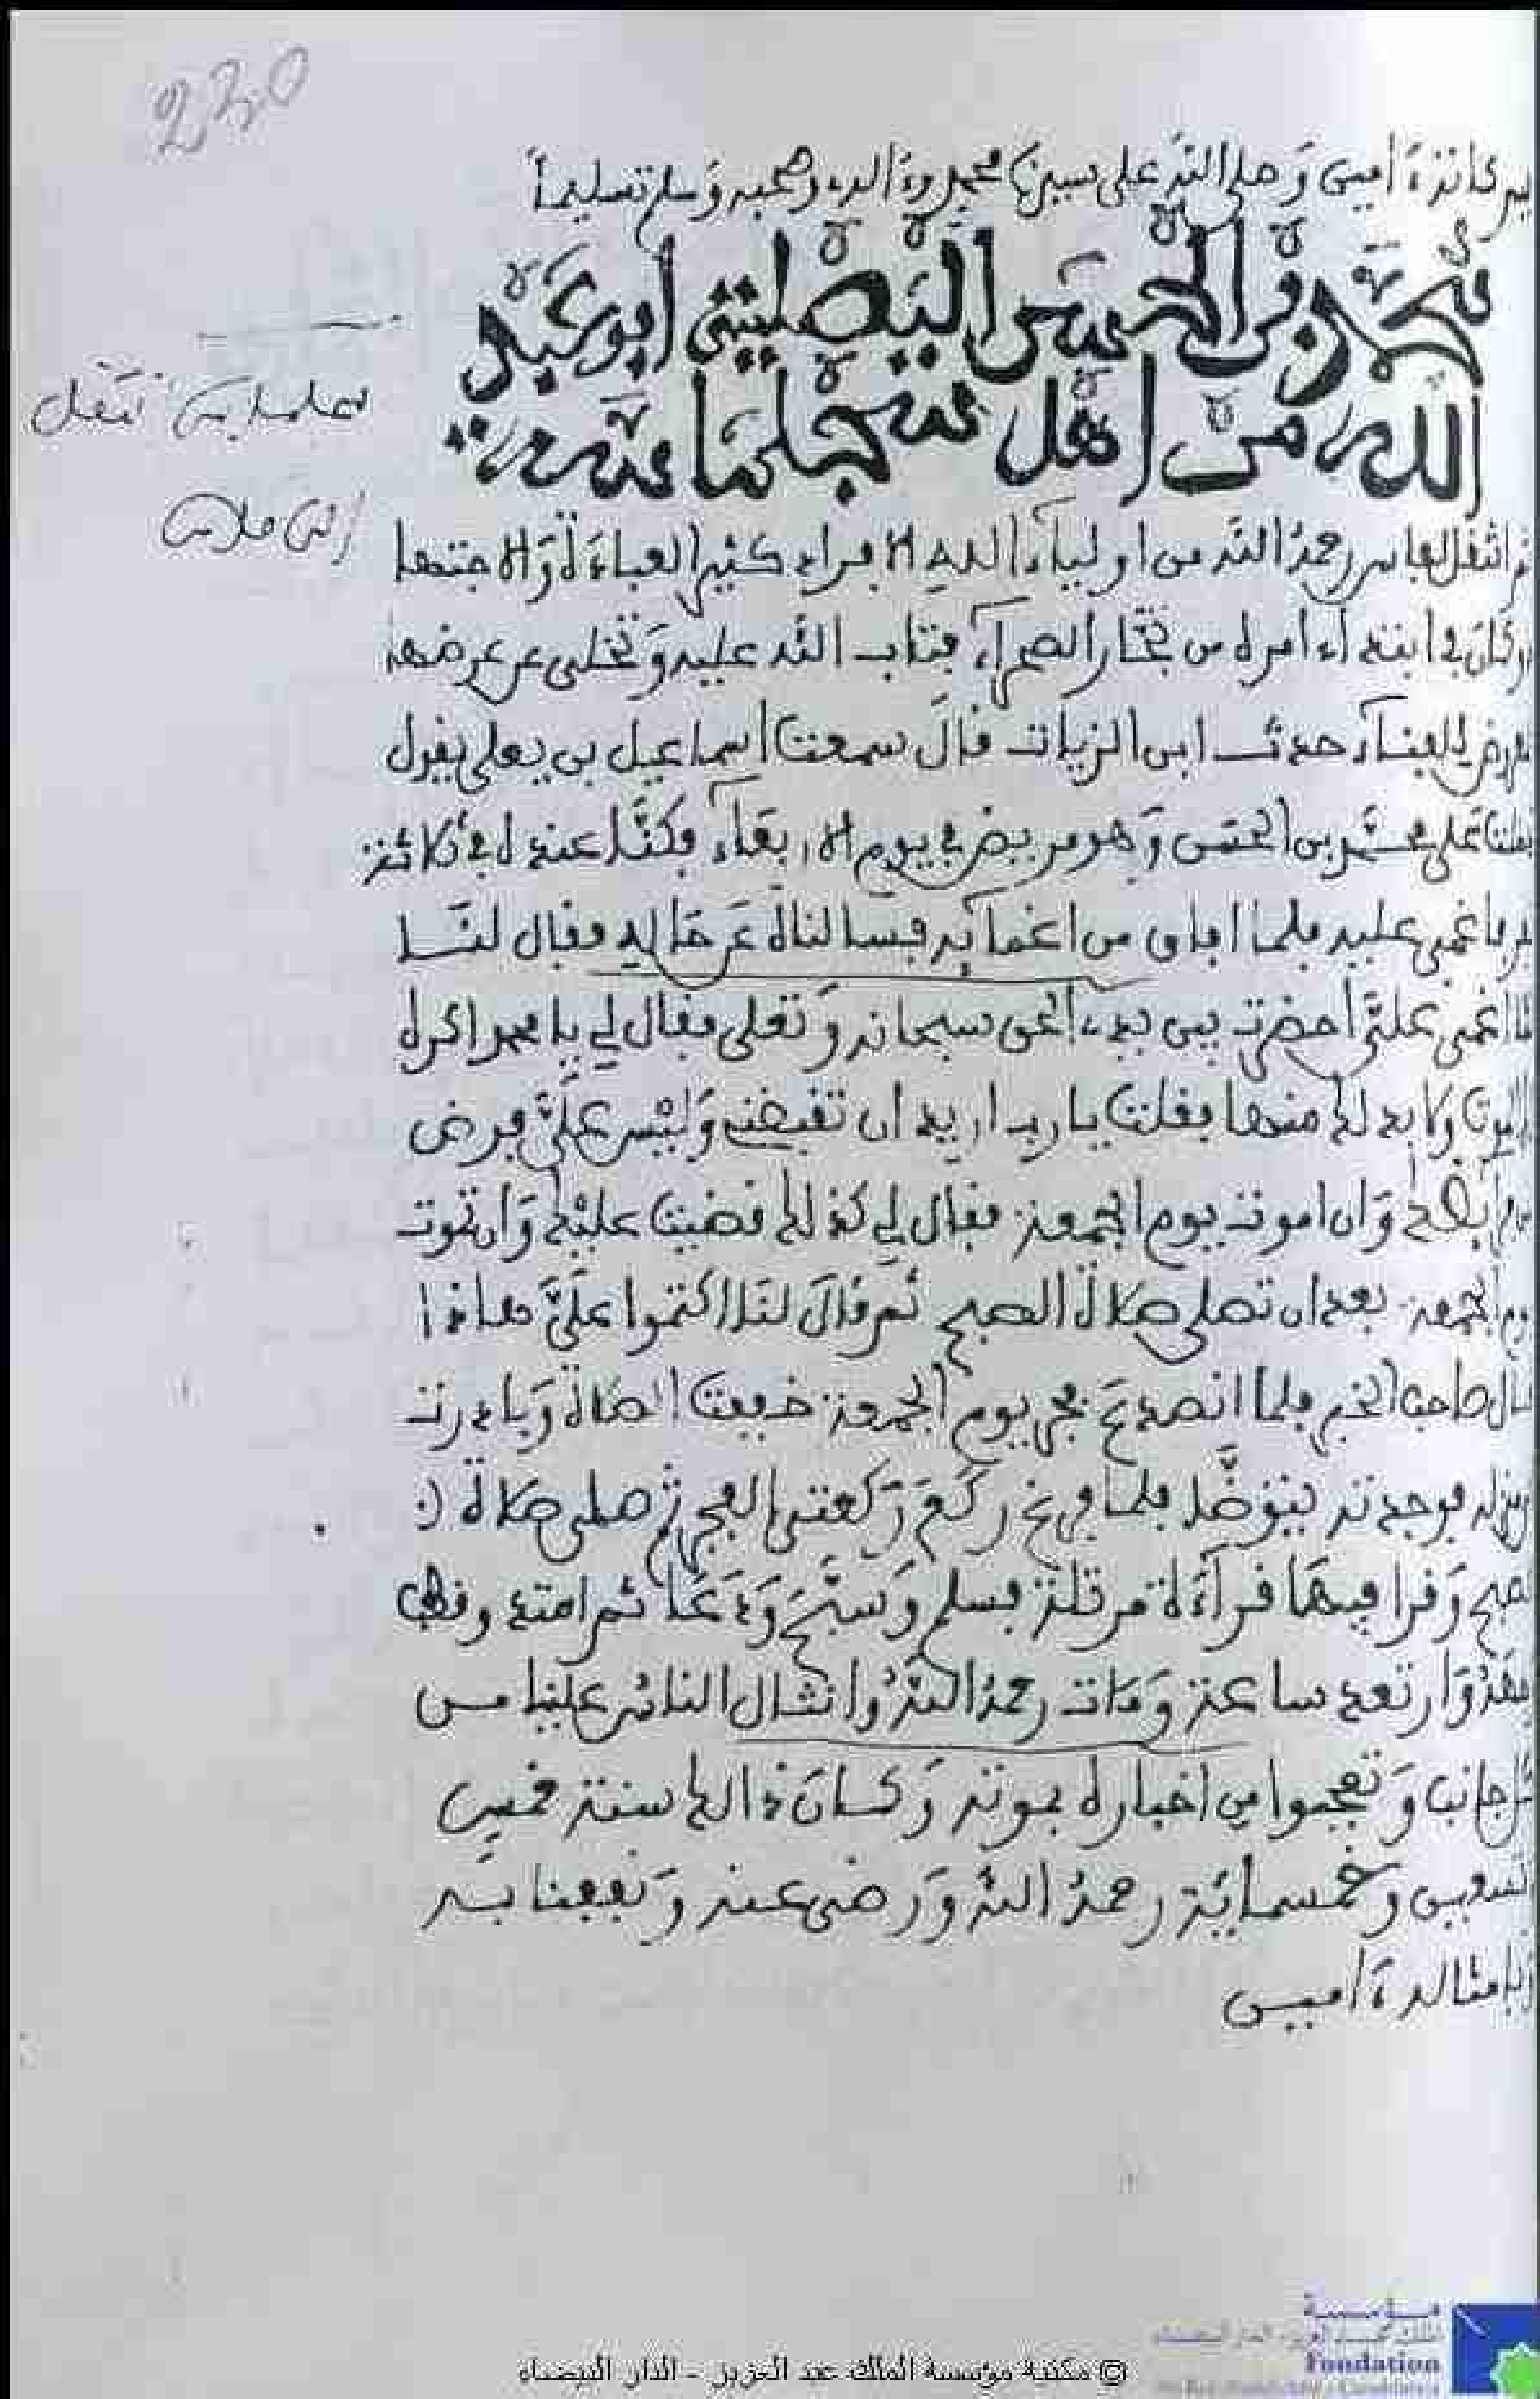 230
ببركاته ءامين وصلى الله على سيدنا محمد وءاله وصحبه وسلم تسليما
محمد بن الحسن اليصليتني ابو عبد
الله من اهل سجلماسة
سجلماسة تنقل
الى فاس رحمه الله من اولياء الله الافراد كثير العبادة والاجتهاد
وكان في ابتداء امره من تجار الصحراء فتاب الله عليه وتخلى عن عرضها
للفناء حدث ابن الزيات قال سمعت اسماعيل بن يعلى يقول
على محمد بن الحسن وهو مريض في يوم الاربعاء وكنا عنده في ثلاثة
فاغمي عليه فلما افاق من اغمائه فسالناه عن حاله فقال لنا
لما اغمي علي احضرت بين يدي الحق سبحانه وتعلى فقال لي يا محمد اتكره
الموت ولا بد لك منها فقلت يا رب اريد ان تقبضني وليس علي فرض
وان اموت يوم الجمعة فقال لي كذلك قضيت عليك وان تموت
يوم الجمعة بعد ان تصلي صلاة الصبح ثم قال لنا اكتموا علي هاذا
قال صاحب الخبر فلما انصدع فجر يوم الجمعة خففت الصلاة وبادرت
لمنزله فوجدته يتوضا فلما فرغ ركع ركعتي الفجر ثم صلى صلاة
الصبح وقرا فيها قراءة مرتلة فسلم وسبح ودعا ثم امتد
وارتعد ساعة ومات رحمه الله وانثال الناس علينا من
كل جانب وتعجبوا من اخباره بموته وكان ذالك سنة خمس
وتسعين وخمسمائة رحمه الله ورضي عنه ونفعنا به
وبامثاله ءامين
© مكتبة مؤسسة الملك عبد العزيز - الدار البيضاء
مؤسسة
Fondation